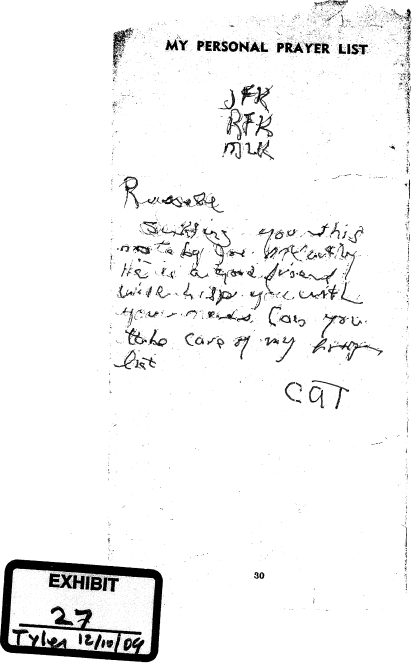 MY PERSONAL PRAYER LIST
JFK
RFK
MLK
Sending you this
note by Joe
He is a good friend
will help you with
your needs. Can you
take care of my
list
CAT
30
EXHIBIT
27
Tyler 12/10/09